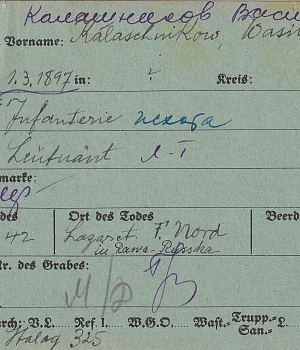 Калашников Васи
Vorname: Kalaschnikow, Wasi
1.3.1897 in: ? Kreis:
Infanterie пехота
Leutnant л-т
marke:
des Ort des Todes Beerd
42 Lazaret F. Nord
in Rawa-Russka
Nr. des Grabes:
rch: V.L. Ref I. W.G.O. Wast.- Trupp.-
San.- L
Stalag 325